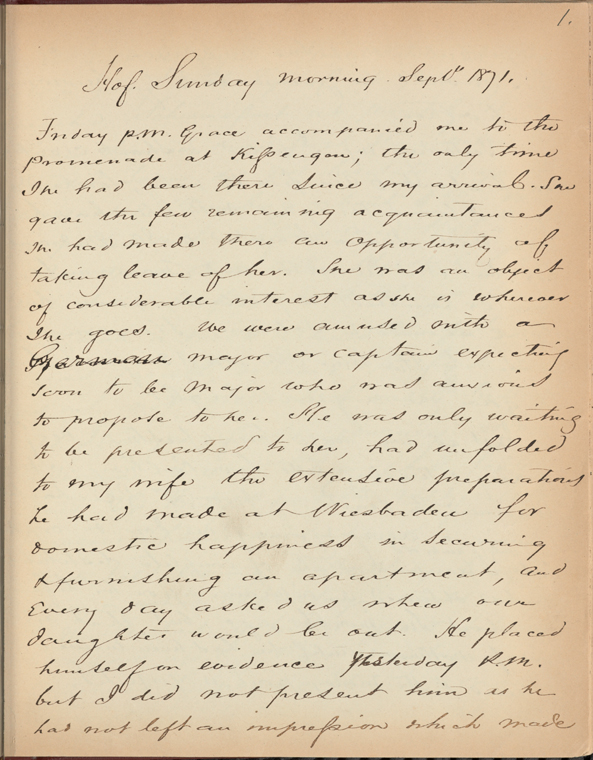 1.
Hof. Sunday morning Sept. 1871.
Friday P.M. Grace accompanied me to the
Promenade at Kissengen; the only time
She had been there since my arrival. She
gave the few remaining acquaintances
She had made there an opportunity of
taking leave of her. She was an object
of considerable interest as she is wherever
She goes. We were amused with a
German major or captain expecting
soon to be major who was anxious
to propose to her. He was only waiting
to be presented to her, had unfolded
to my wife the extensive preparations
he had made at Wiesbaden for
domestic happiness in securing
& furnishing an apartment, and
every day asked us when our
daughter would be out. He placed
himself on evidence yesterday P.M.
but I did not present him as he
had not left an impression which made